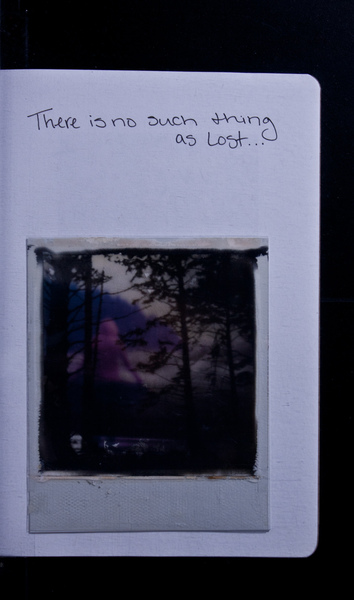 There is no such thing
as Lost...